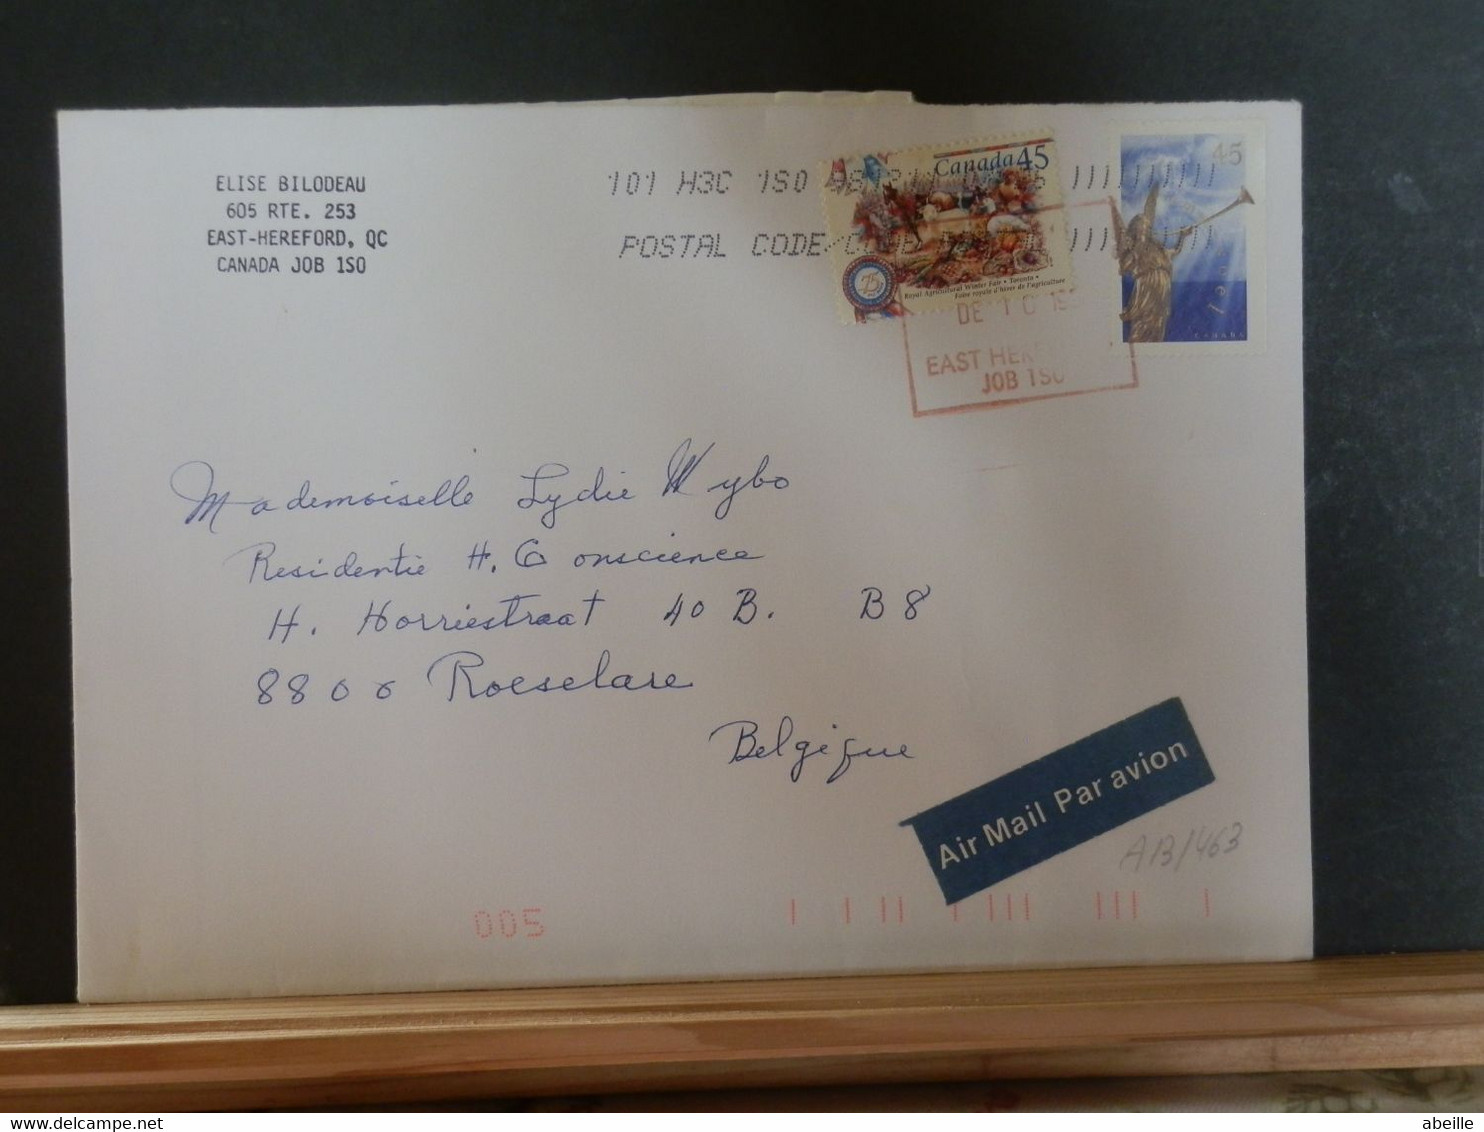 ELISE BILODEAU
605 RTE. 253
EAST-HEREFORD, QC
CANADA JOB 1S0
101 H3C 1S0
POSTAL CODE/CODE
Canada 45
75
Royal Agricultural Winter Fair • Toronto •
Foire royale d'hiver de l'agriculture
45
CANADA
DE 10
EAST HERE
JOB 1S0
Mademoiselle Lydie Wybo
Residentie H. Conscience
H. Horriestraat 40 B. B8
8800 Roeselare
Belgique
Air Mail Par avion
AB/463
005
abeille